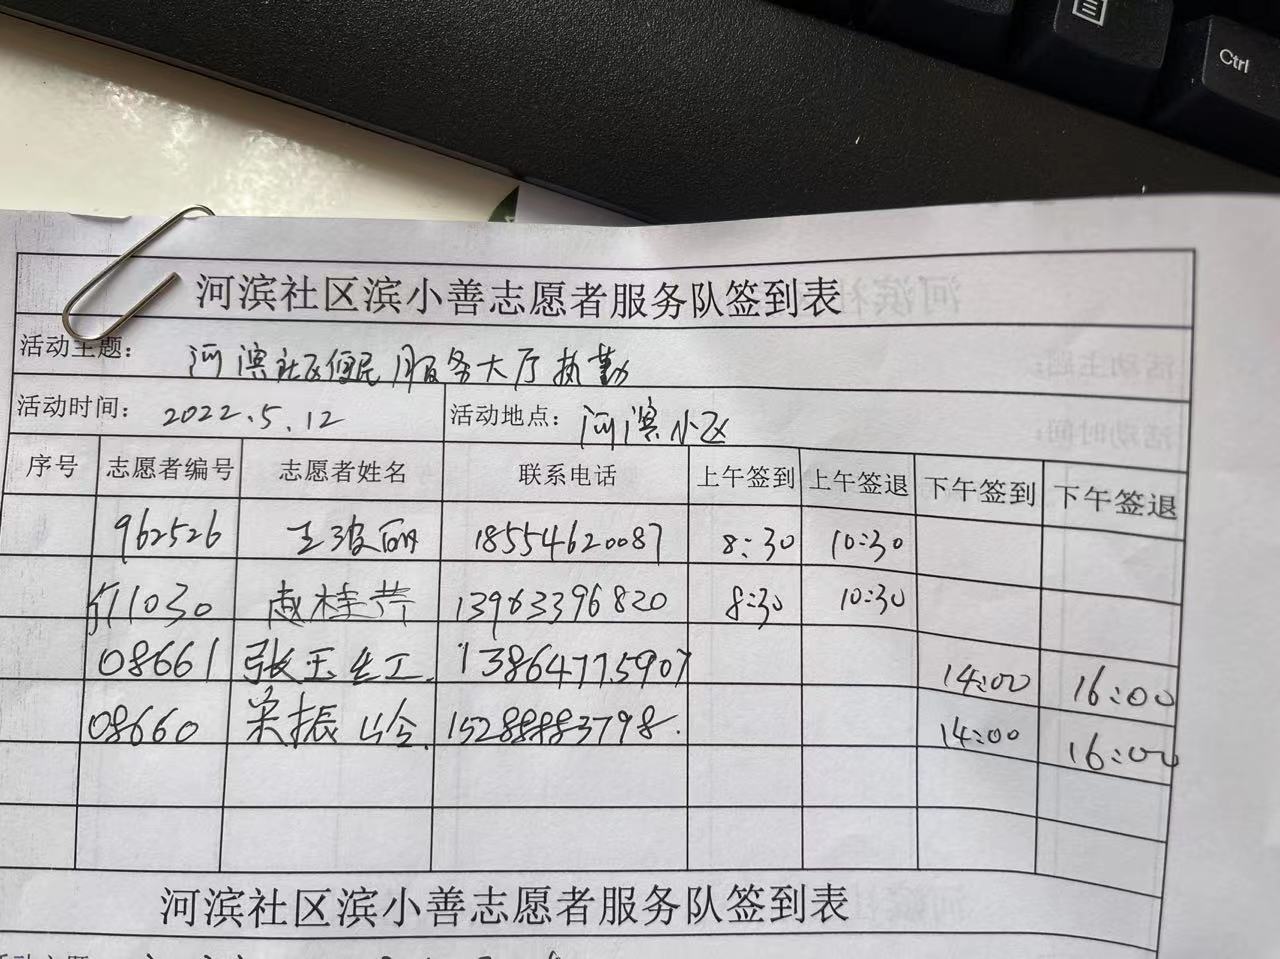 Ctrl
河滨社区滨小善志愿者服务队签到表
活动主题: 河滨社区便民服务大厅执勤
活动时间: 2022.5.12 活动地点: 河滨小区
序号 志愿者编号 志愿者姓名 联系电话 上午签到 上午签退 下午签到 下午签退
962526 王波丽 18554620087 8:30 10:30
11030 赵桂芹 13963396820 8:30 10:30
08661 张玉红 13864775907 14:00 16:00
08660 宋振岭 15288883798 14:00 16:00
河滨社区滨小善志愿者服务队签到表